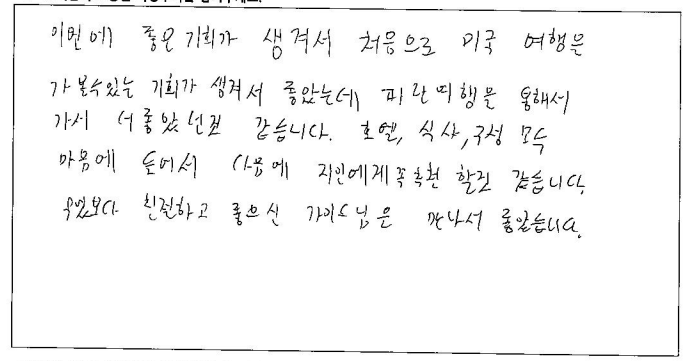 이번에 좋은 기회가 생겨서 처음으로 미국 여행을
가 볼수있는 기회가 생겨서 좋았는데, 파란여행을 통해서
가서 더좋았던것 같습니다. 호텔, 식사, 구성 모두
마음에 들어서 다음에 지인에게 꼭 추천 할것 같습니다.
무엇보다 친절하고 좋으신 가이드님은 만나서 좋았습니다.